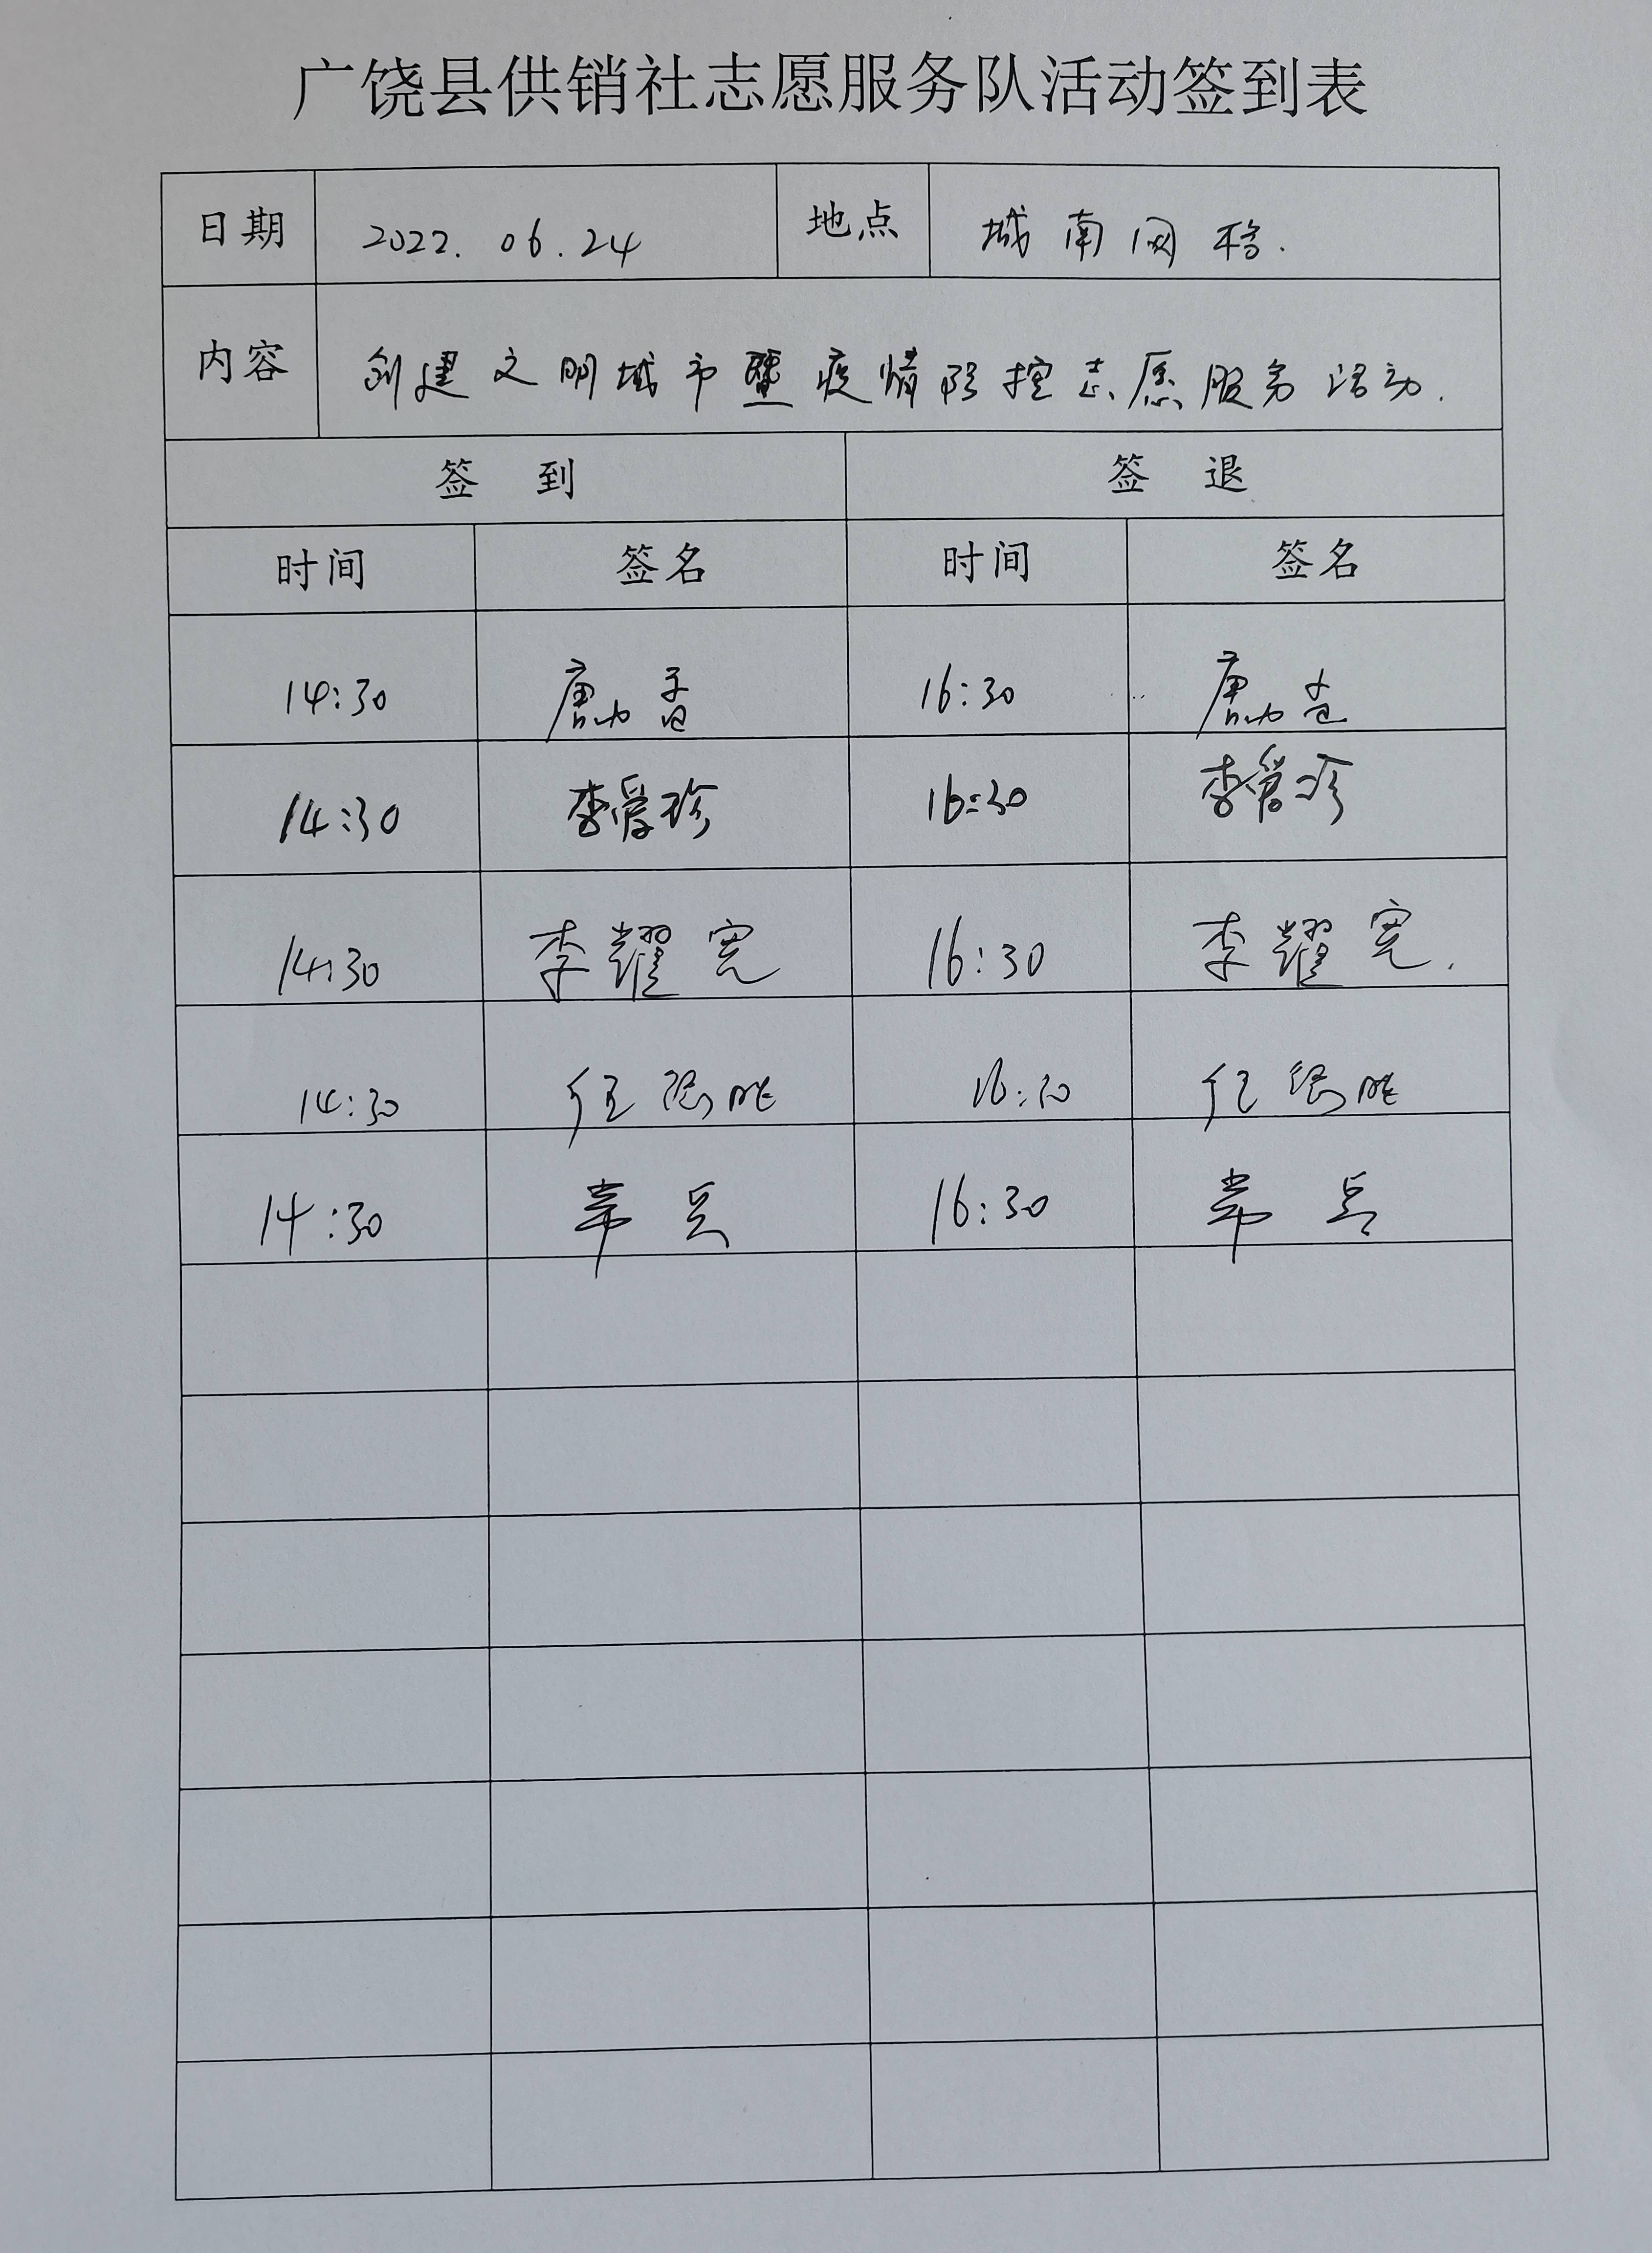 广饶县供销社志愿服务队活动签到表
日期 2022.06.24 地点 城南网格.
内容 创建文明城市暨疫情防控志愿服务活动.
签 到 签 退
时间 签名 时间 签名
14:30 16:30
14:30 李爱珍 16:30 李爱珍
14:30 李耀宽 16:30 李耀宽.
14:30 任强胜 16:30 任强胜
14:30 常兵 16:30 常兵